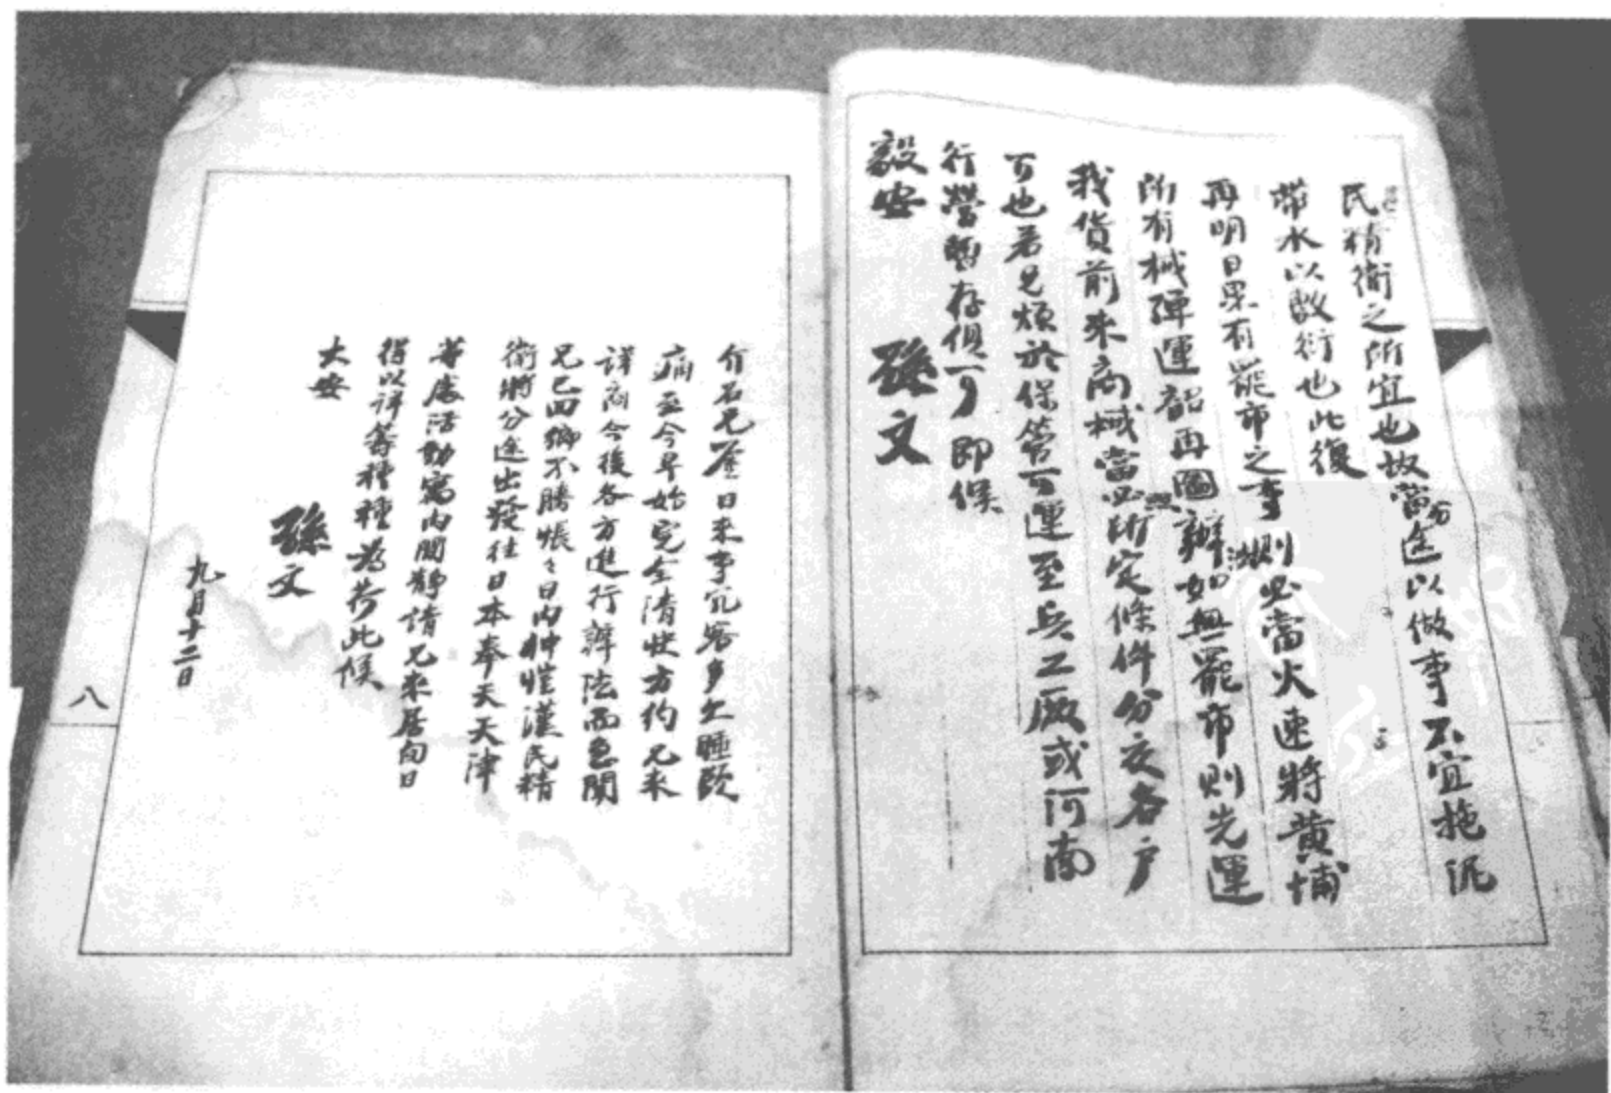 民精衛之所宜也故當分途以做事不宜拖泥
帶水以敷衍也此復
再明日果有罷市之事則必當火速將黃埔
所有械彈運韶再圖辦法如無罷市則先運
我貨前來商械當照所定條件分交各戶
可也若兄煩於保管可運至兵工廠或河南
行營暫存俱可即候
毅安
孫文
介石兄鑒日來事冗客多欠睡頭
痛至今早始完全清快方約兄來
詳商今後各方進行辦法而急聞
兄已回鄉不勝悵悵日內仲愷漢民精
衛將分途出發往日本奉天天津
等處活動寓內閒靜請兄來居旬日
得以詳籌種種為荷此候
大安
孫文
九月十二日
八